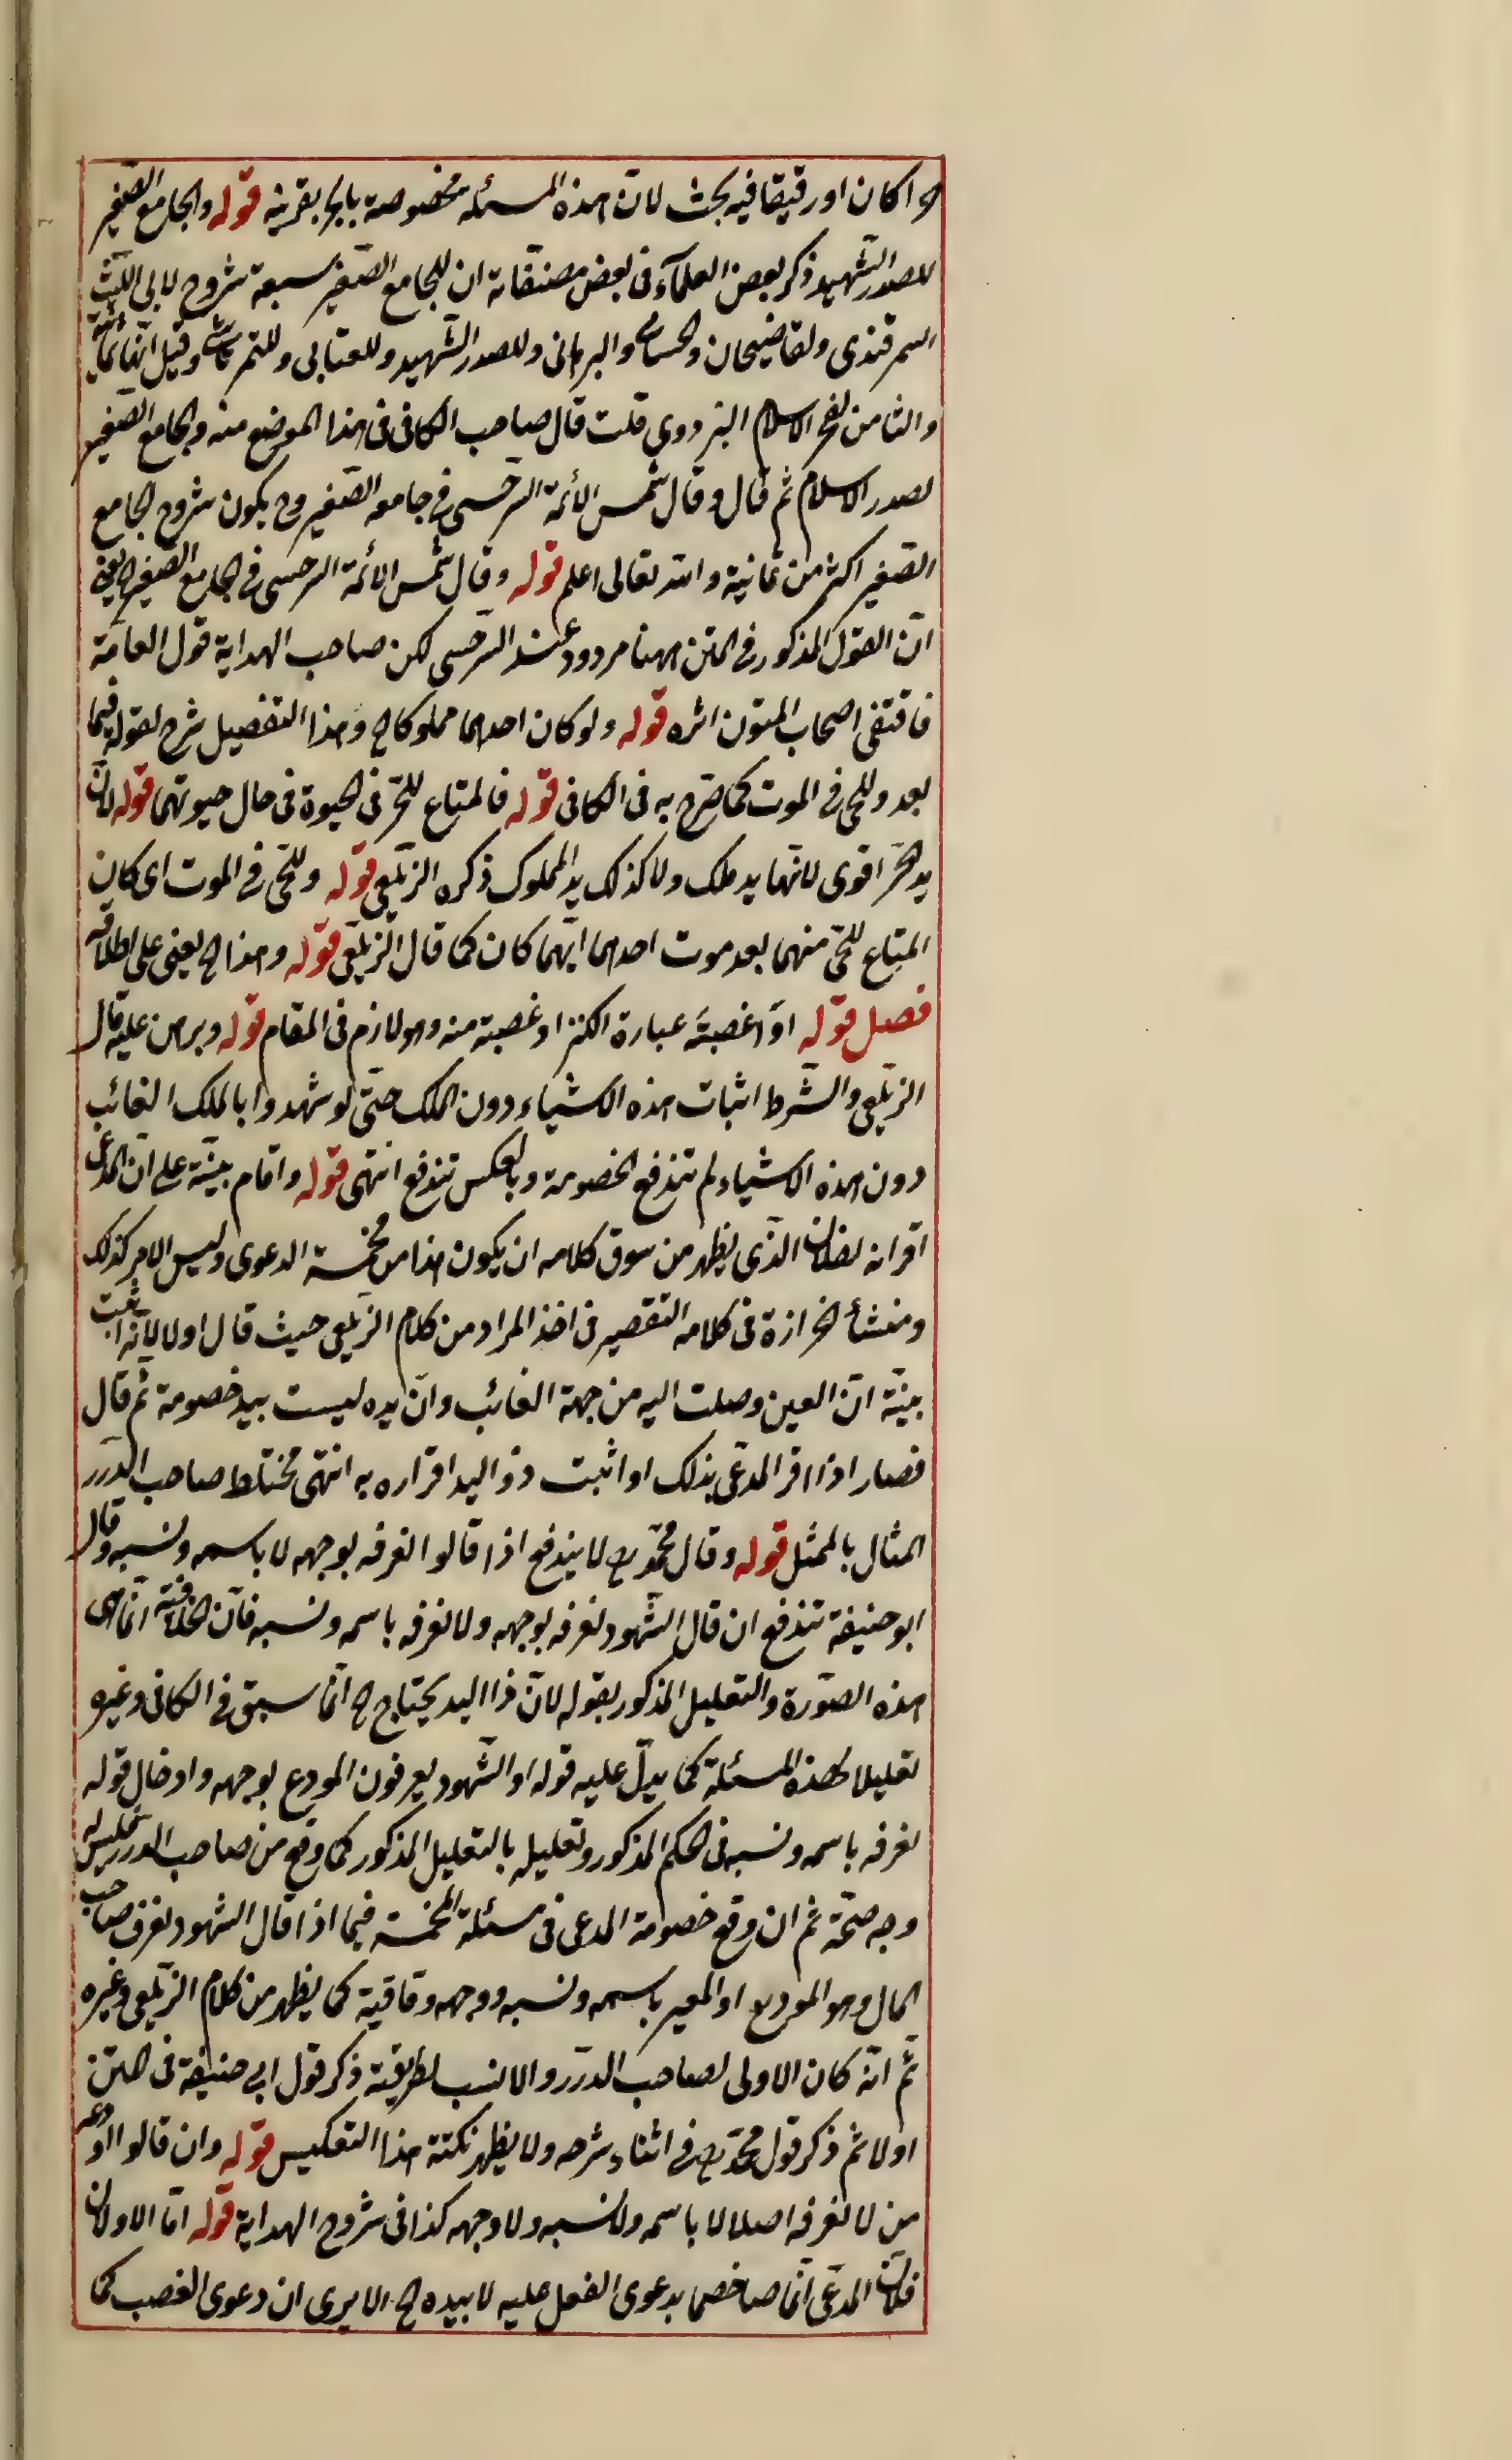 حرا كان او رقيقا فيه بحث لانّ هذه المسئله مخصوصة بالحر بقرينه قوله والجامع الصّغير
للصدر الشّهيد ذكر بعض العلمآء فى بعض مصنّفاته ان للجامع الصّغير سبعة شروح لابى اللّيث
السمرقندى ولقاضيخان والحسامى والبرهانى وللصدر الشّهيد وللعتابى وللتمرتاشى وقيل انّها ثمانية
والثامن لفخر الاسلام البزدوى قلت قال صاحب الكافى فى هذا الموضع منه والجامع الصّغير
لصدر الاسلام ثم قال وقال شمس الأئمة السّرخسى فى جامعه الصّغير وح يكون شروح الجامع
الصّغير اكثر من ثمانية والله تعالى اعلم قوله وقال شمس الأئمة السرخسى فى الجامع الصّغير الخ يعنى
انّ القول المذكور فى المتن ههنا مردود عند السّرخسى لكن صاحب الهداية قول العامّة
فاقتفى اصحاب المتون اثره قوله ولو كان احدهما مملوكا الخ وهذا التفصيل شرح لقوله فيما
بعد وللحىّ فى الموت كما صرّح به فى الكافى قوله فالمتاع للحرّ فى الحيوة فى حال حيوتهما قوله لانّ
يد الحرّ اقوى لانّها يد ملك ولا كذلك يد المملوك ذكره الزّيلعى قوله وللحىّ فى الموت اى كان
المتاع للحىّ منهما بعد موت احدهما ايّهما كان كما قال الزّيلعى قوله وهذا الخ يعنى على اطلاقه
فصل قوله او غصبته عبارة الكنز او غصبته منه وهو لازم فى المقام قوله وبرهن عليه قال
الزّيلعى والشّرط اثبات هذه الاشياء دون الملك حتّى لو شهدوا بالملك الغائب
دون هذه الاشياء لم تندفع الخصومة وبالعكس تندفع انتهى قوله واقام بيّنة على انّ المدّعى
اقر انه لفلان الّذى يظهر من سوق كلامه ان يكون هذا من مخمسة الدعوى وليس الامر كذلك
ومنشأ الحزازة فى كلامه التقصير فى اخذ المراد من كلام الزّيلعى حيث قال اولا لانّه اثبت
ببيّنة انّ العين وصلت اليه من جهة الغائب وانّ يده ليست بيد خصومة ثم قال
فصار اذا اقر المدّعى بذلك او اثبت ذو اليد اقراره به انتهى فخلط صاحب الدّرر
المثال بالممثل قوله وقال محمّد رح لا يندفع اذا قالوا نعرفه بوجهه لا باسمه ونسبه وقال
ابو حنيفة تندفع ان قال الشّهود نعرفه بوجهه ولا نعرفه باسمه ونسبه فانّ الخلافيّة انّما هى
هذه الصّورة والتعليل المذكور بقوله لانّ ذا اليد يحتاج الخ انّما سبق فى الكافى وغيره
تعليلا لهذه المسئلة كما يدلّ عليه قوله او الشّهود يعرفون المودع بوجهه وادخال قوله
نعرفه باسمه ونسبه فى الحكم المذكور وتعليله بالتعليل المذكور كما وقع من صاحب الدرر فليس له
وجه صحّة ثم ان وقع خصومة المدعى فى مسئلة المخمسة فيما اذا قال الشهود نعرف صاحب
المال وهو المودع او المعير باسمه ونسبه ووجهه وفاقية كما يظهر من كلام الزّيلعى وغيره
ثم انّه كان الاولى لصاحب الدّرر والانسب لطريقته ذكر قول ابى حنيفة فى المتن
اولا ثم ذكر قول محمّد رح فى اثناء شرحه ولا يظهر نكتة هذا التعكيس قوله وان قالوا اودعه
من لا نعرفه اصلا لا باسمه ولا نسبه ولا وجهه كذا فى شروح الهداية قوله امّا الاولان
فلانّ المدّعى انّما صا خصما بدعوى الفعل عليه لا بيده الخ الا يرى ان دعوى الغصب كما